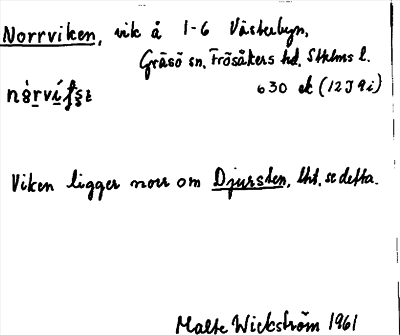 Norrviken, vik å 1-6 Västerbyn,
Gräsö sn, Frösåkers hd, Sthlms l.
630 ek (12J9i)
Viken ligger norr om Djursten, lht, se detta.
Malte Wickström 1961